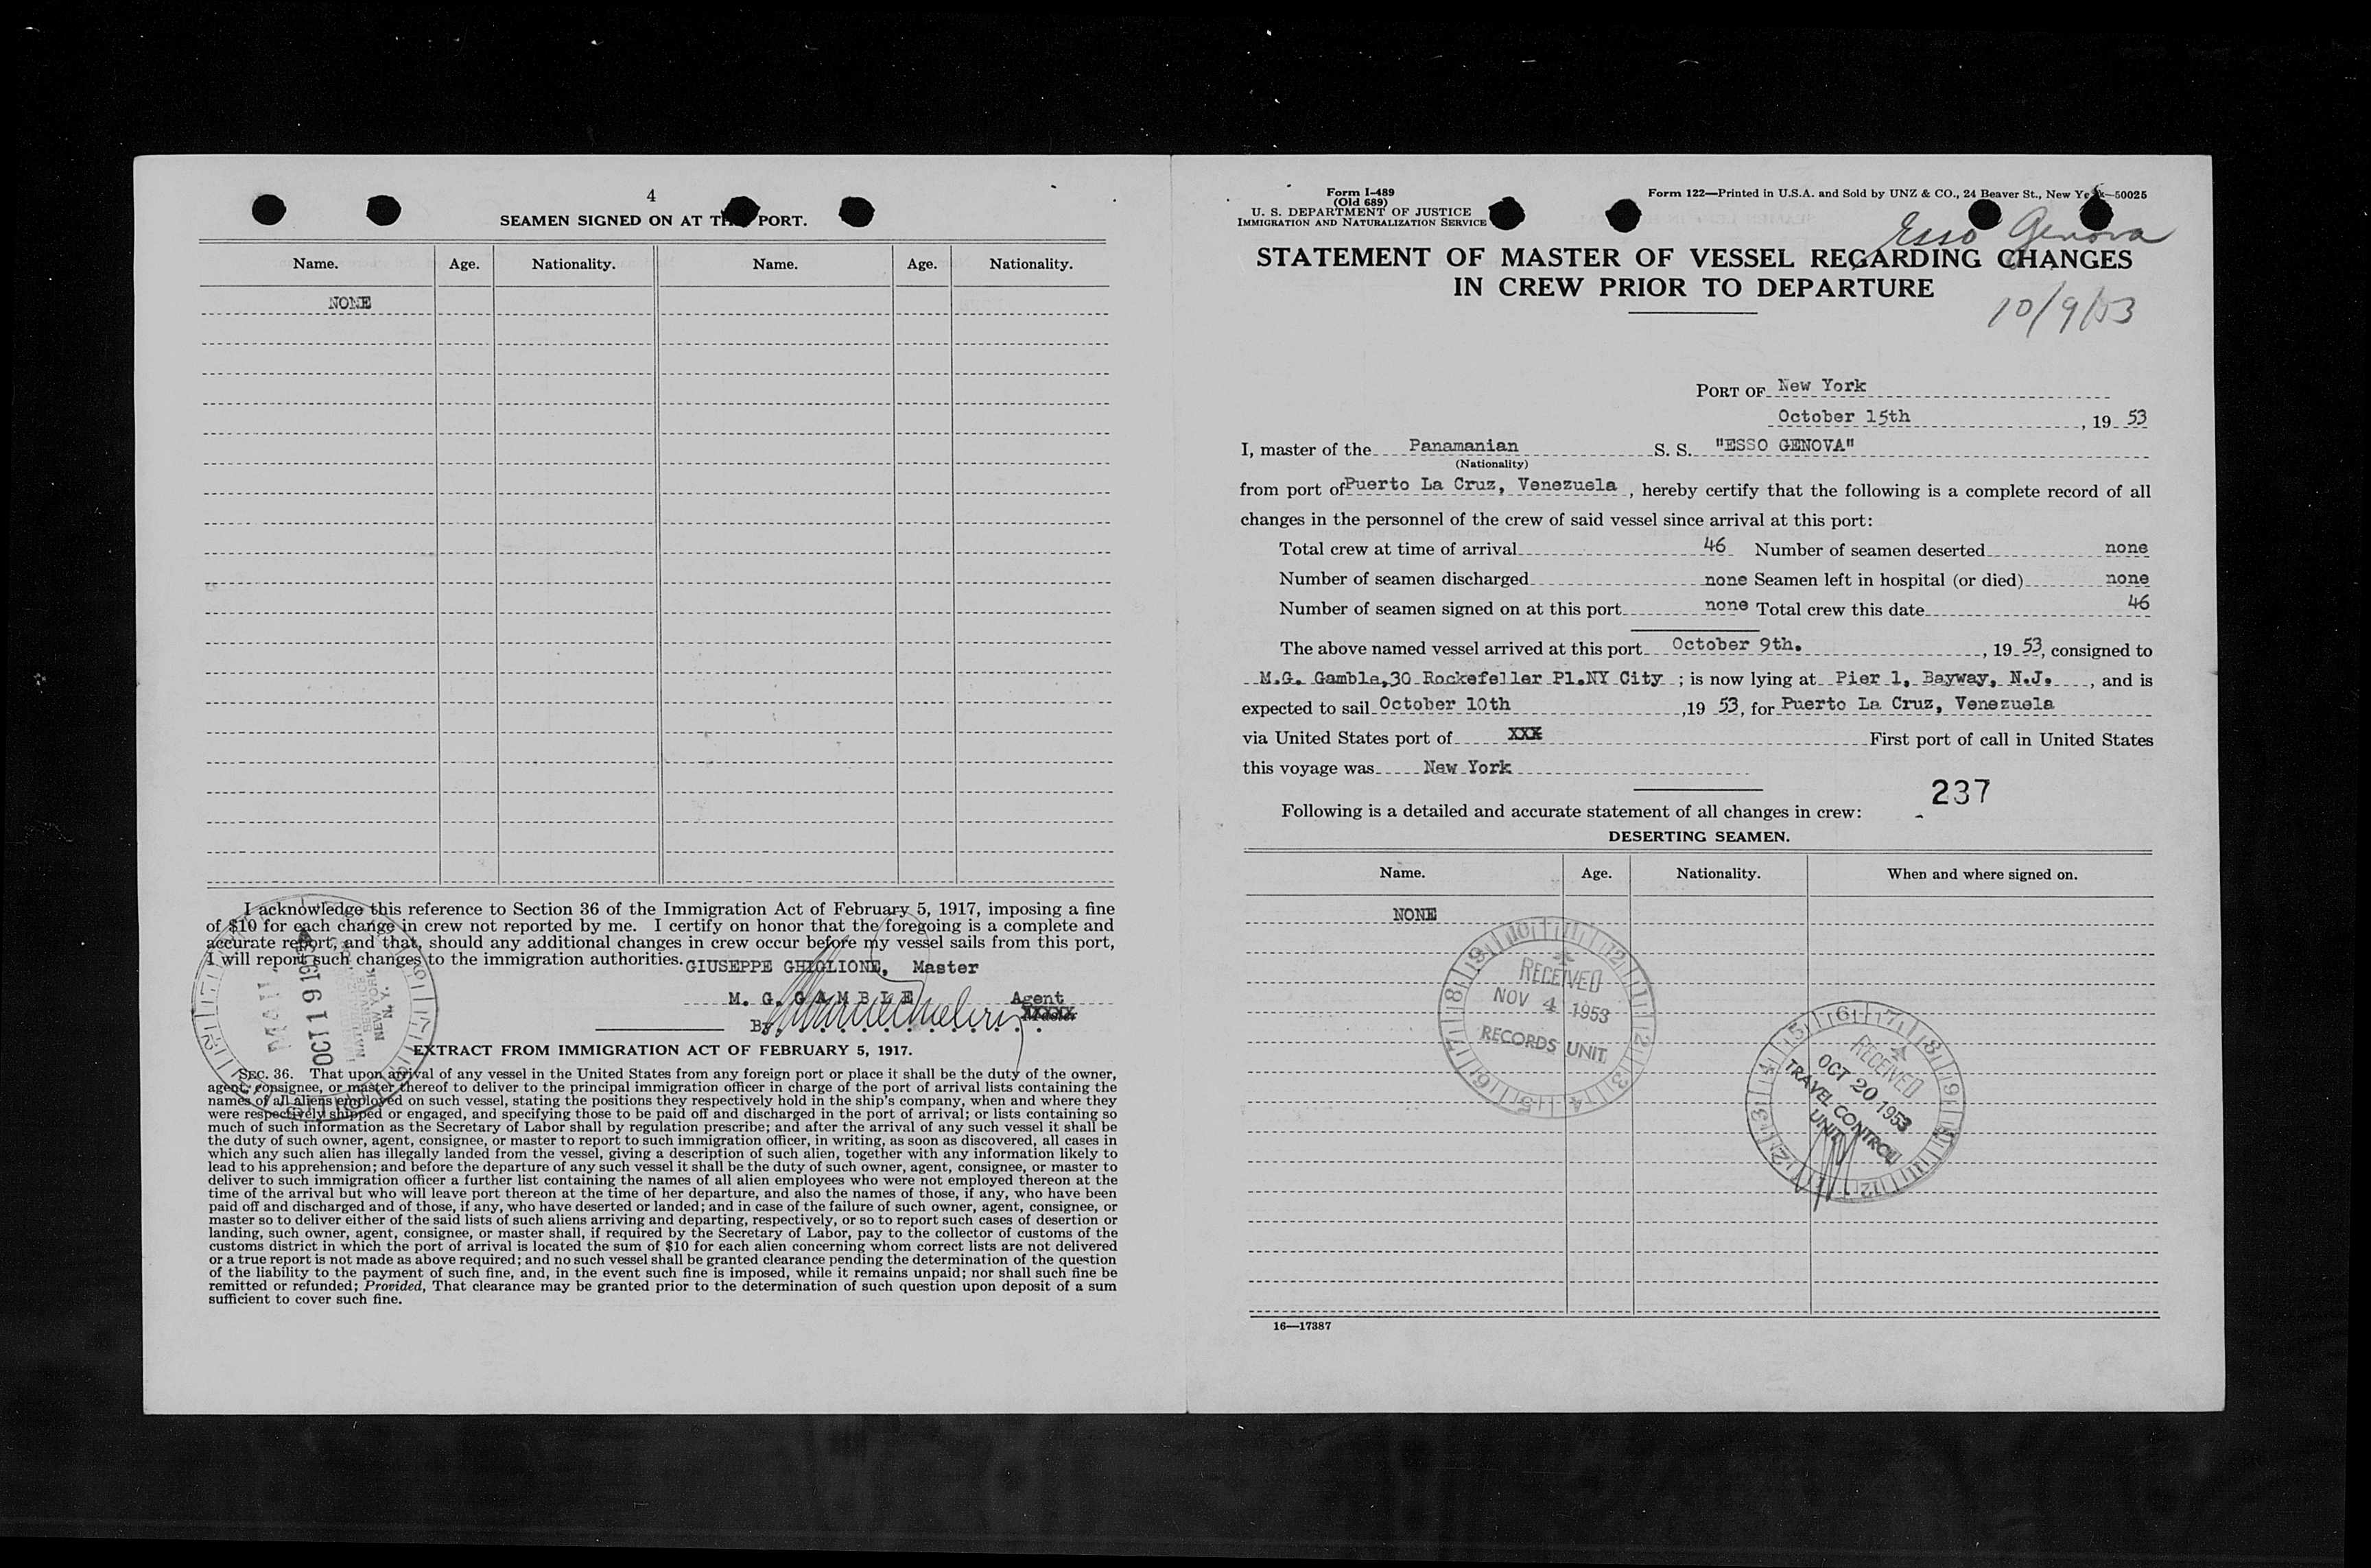 4
SEAMEN SIGNED ON AT THIS PORT.
Name. Age. Nationality. Name. Age. Nationality.
NONE
I acknowledge this reference to Section 36 of the Immigration Act of February 5, 1917, imposing a fine
of $10 for each change in crew not reported by me. I certify on honor that the foregoing is a complete and
accurate report, and that, should any additional changes in crew occur before my vessel sails from this port,
I will report such changes to the immigration authorities.
GIUSEPPE GHIGLIONE, Master
M. G. GAMBLE Agent
By
MAIL
OCT 19 1953
SERVICE
NEW YORK
N. Y.
EXTRACT FROM IMMIGRATION ACT OF FEBRUARY 5, 1917.
SEC. 36. That upon arrival of any vessel in the United States from any foreign port or place it shall be the duty of the owner,
agent, consignee, or master thereof to deliver to the principal immigration officer in charge of the port of arrival lists containing the
names of all aliens employed on such vessel, stating the positions they respectively hold in the ship's company, when and where they
were respectively shipped or engaged, and specifying those to be paid off and discharged in the port of arrival; or lists containing so
much of such information as the Secretary of Labor shall by regulation prescribe; and after the arrival of any such vessel it shall be
the duty of such owner, agent, consignee, or master to report to such immigration officer, in writing, as soon as discovered, all cases in
which any such alien has illegally landed from the vessel, giving a description of such alien, together with any information likely to
lead to his apprehension; and before the departure of any such vessel it shall be the duty of such owner, agent, consignee, or master to
deliver to such immigration officer a further list containing the names of all alien employees who were not employed thereon at the
time of the arrival but who will leave port thereon at the time of her departure, and also the names of those, if any, who have been
paid off and discharged and of those, if any, who have deserted or landed; and in case of the failure of such owner, agent, consignee, or
master so to deliver either of the said lists of such aliens arriving and departing, respectively, or so to report such cases of desertion or
landing, such owner, agent, consignee, or master shall, if required by the Secretary of Labor, pay to the collector of customs of the
customs district in which the port of arrival is located the sum of $10 for each alien concerning whom correct lists are not delivered
or a true report is not made as above required; and no such vessel shall be granted clearance pending the determination of the question
of the liability to the payment of such fine, and, in the event such fine is imposed, while it remains unpaid; nor shall such fine be
remitted or refunded; Provided, That clearance may be granted prior to the determination of such question upon deposit of a sum
sufficient to cover such fine.
Form I-489
(Old 689)
U. S. DEPARTMENT OF JUSTICE
IMMIGRATION AND NATURALIZATION SERVICE
Form 122—Printed in U.S.A. and Sold by UNZ & CO., 24 Beaver St., New York—50025
Esso Genova
STATEMENT OF MASTER OF VESSEL REGARDING CHANGES
IN CREW PRIOR TO DEPARTURE
10/9/53
PORT OF New York
October 15th, 19 53
I, master of the Panamanian S. S. "ESSO GENOVA"
(Nationality)
from port of Puerto La Cruz, Venezuela, hereby certify that the following is a complete record of all
changes in the personnel of the crew of said vessel since arrival at this port:
Total crew at time of arrival 46 Number of seamen deserted none
Number of seamen discharged none Seamen left in hospital (or died) none
Number of seamen signed on at this port none Total crew this date 46
The above named vessel arrived at this port October 9th., 19 53, consigned to
M.G. Gamble, 30 Rockefeller Pl. NY City ; is now lying at Pier 1, Bayway, N.J. , and is
expected to sail October 10th ,19 53, for Puerto La Cruz, Venezuela
via United States port of XXX First port of call in United States
this voyage was New York
237
Following is a detailed and accurate statement of all changes in crew:
DESERTING SEAMEN.
Name. Age. Nationality. When and where signed on.
NONE
RECEIVED
NOV 4 1953
RECORDS UNIT
RECEIVED
OCT 20 1953
TRAVEL CONTROL
UNIT
16—17387